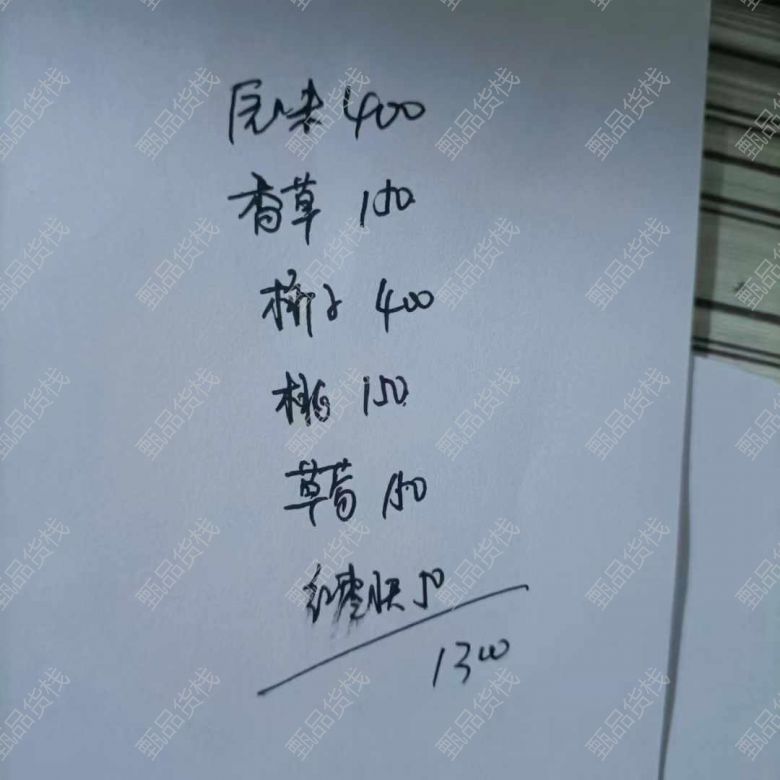 400
香草 150
椰子 400
桃 150
草莓 150
红枣 50
1300
甄品货栈